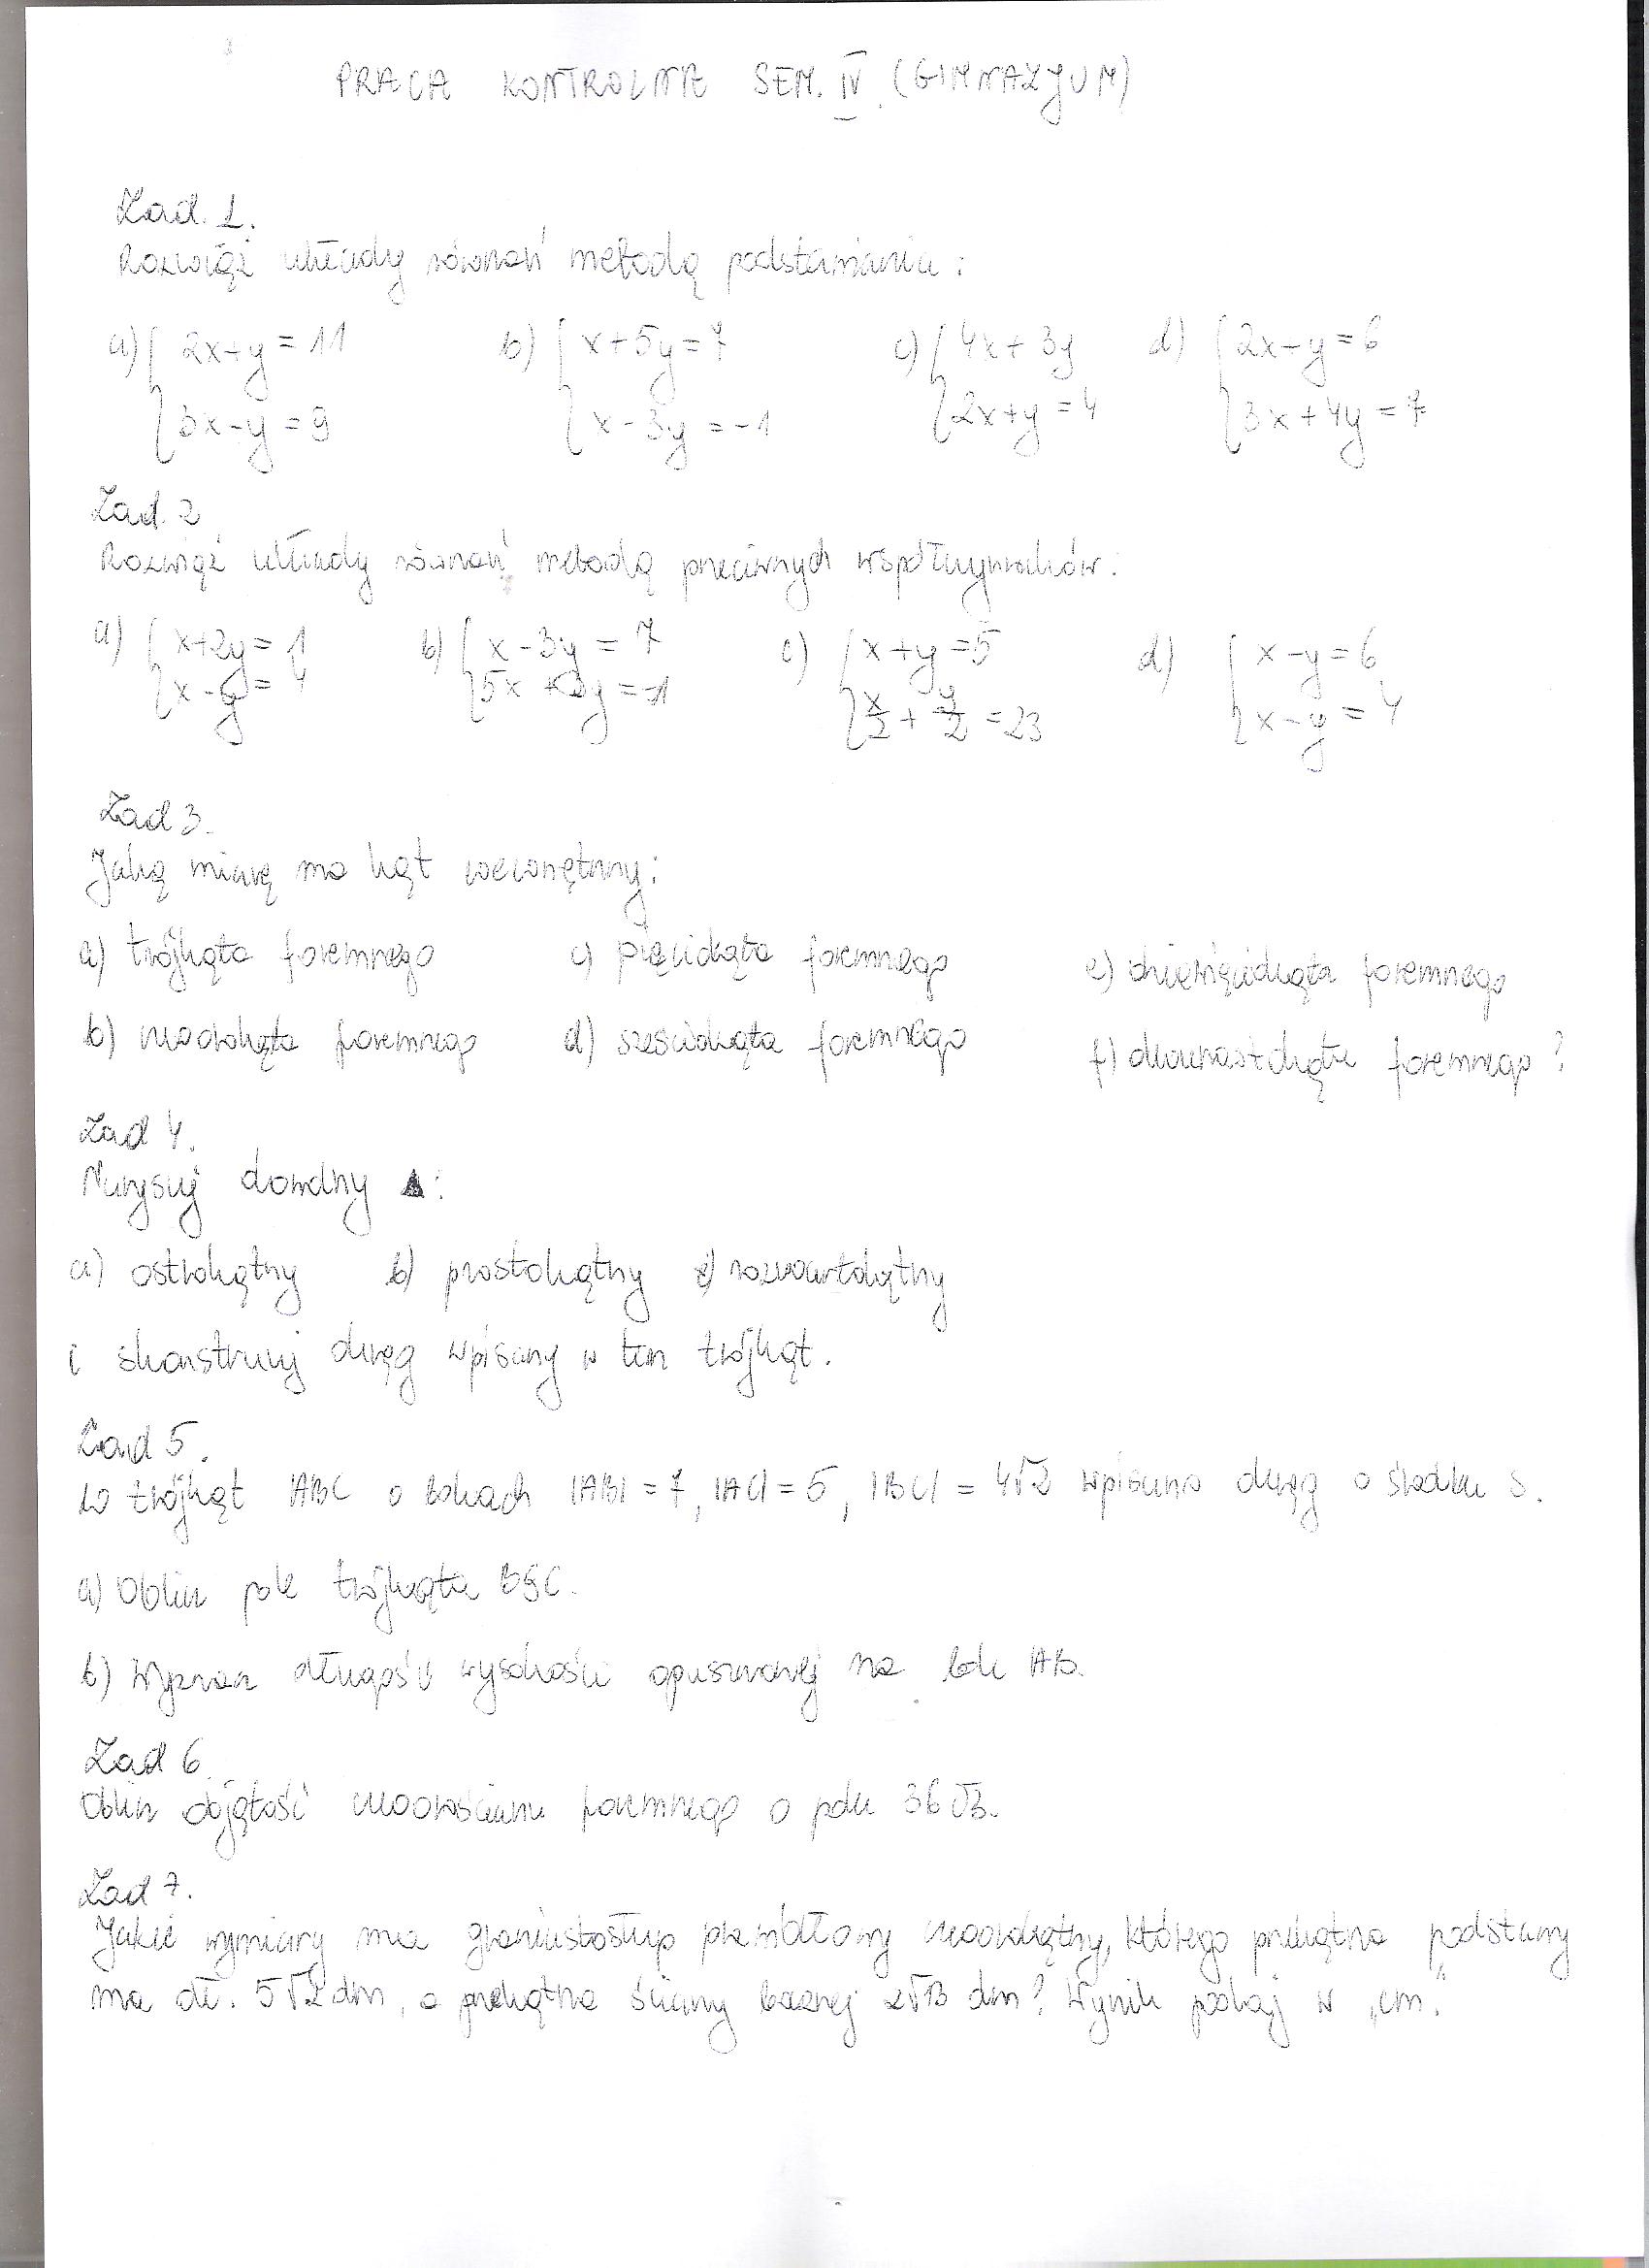 PRACA KONTROLNA SEM. IV (GIMNAZJUM)
Zad. 1.
Rozwiąż układy równań metodą podstawiania:
a) { 2x+y = 11 b) { x+5y=7 c) { 4x+3y d) { 2x-y=6
{ 3x-y = 9 { x-3y = -1 { 2x+y = 4 { 3x+4y = 7
Zad. 2
Rozwiąż układy równań metodą przeciwnych współczynników:
a) { x+2y = 1 b) { x-3y = 7 c) { x+y=5 d) { x-y=6
{ x-y = 4 { 5x+3y = -1 { x/2 + y/2 = 23 { x-y = 4
Zad 3.
Jaką miarę ma kąt wewnętrzny:
a) trójkąta foremnego c) pięciokąta foremnego e) dziewięciokąta foremnego
b) czworokąta foremnego d) sześciokąta foremnego f) dwunastokąta foremnego?
Zad 4.
Narysuj dowolny ▲:
a) ostrokątny b) prostokątny c) rozwartokątny
i skonstruuj okrąg wpisany w ten trójkąt.
Zad 5.
W trójkąt ABC o bokach |AB| = 7, |AC| = 5, |BC| = 4√2 wpisano okrąg o środku S.
a) Oblicz pole trójkąta BSC.
b) Wyznacz długość wysokości opuszczonej na bok AB.
Zad 6.
Oblicz objętość czworościanu foremnego o polu 36√3.
Zad 7.
Jakie wymiary ma graniastosłup prawidłowy czworokątny, którego przekątna podstawy
ma dł. 5√2 dm, a przekątna ściany bocznej 2√13 dm? Wynik podaj w „cm".